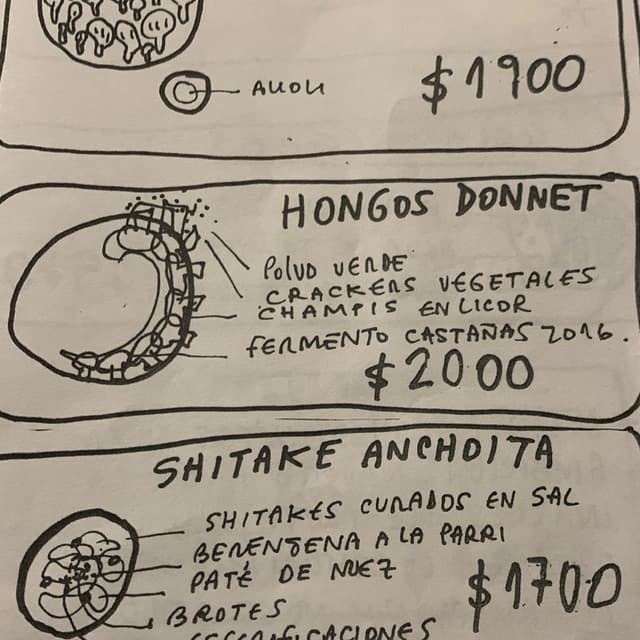 ALIOLI
$1900
HONGOS DONNET
POLVO VERDE
CRACKERS VEGETALES
CHAMPIS EN LICOR
FERMENTO CASTAÑAS 2016.
$2000
SHITAKE ANCHOITA
SHITAKES CURADOS EN SAL
BERENJENA A LA PARRI
PATÉ DE NUEZ
$1700
BROTES